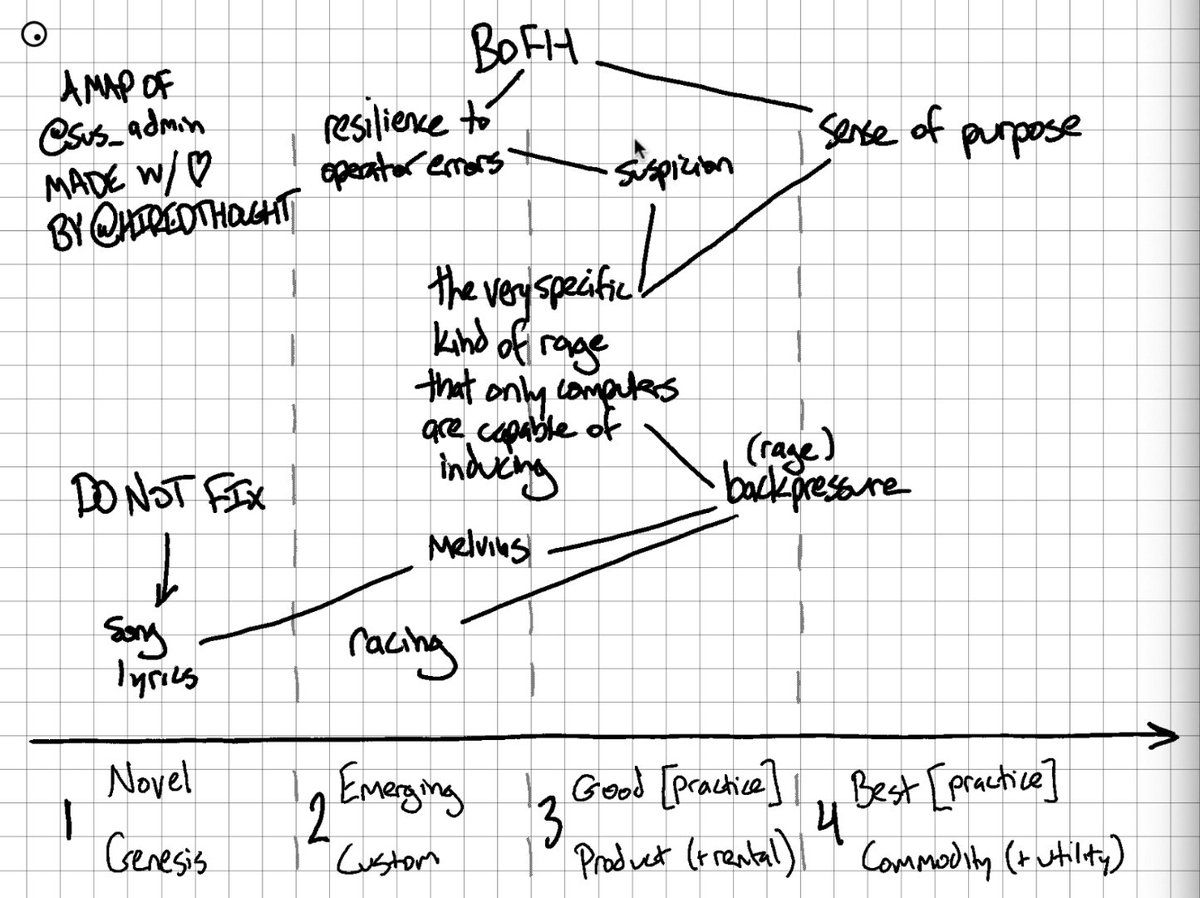 A MAP OF
@sus_admin
MADE W/ ♡
BY @HIREDTHOUGHT
BOFH
resilience to
operator errors
suspicion
sense of purpose
the very specific
kind of rage
that only computers
are capable of
inducing
(rage)
backpressure
DO NOT FIX
Melvins
song
lyrics
racing
1
Novel
Genesis
2
Emerging
Custom
3
Good [practice]
Product (+rental)
4
Best [practice]
Commodity (+utility)